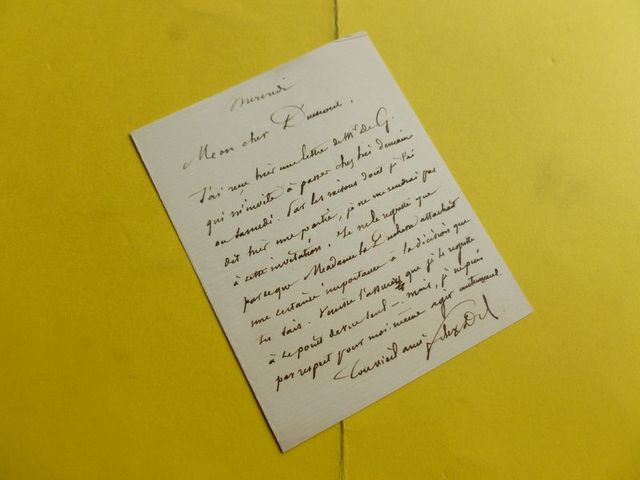 Mercredi
Mon cher Dumone,
J'ai reçu hier une lettre de Mr De G.
qui m'invite à passer chez lui demain
ou samedi. Par les raisons dont je t'ai
dit hier une partie, je ne me rendrai pas
à cette invitation. Je ne le regrette que
parce que Madame la attachait
une certaine importance à la décision que
tu sais. l'assurer que je le regrette
à ce point de vue seul — mais, je ne puis
par respect pour moi-même agir autrement.
Ton vieil ami